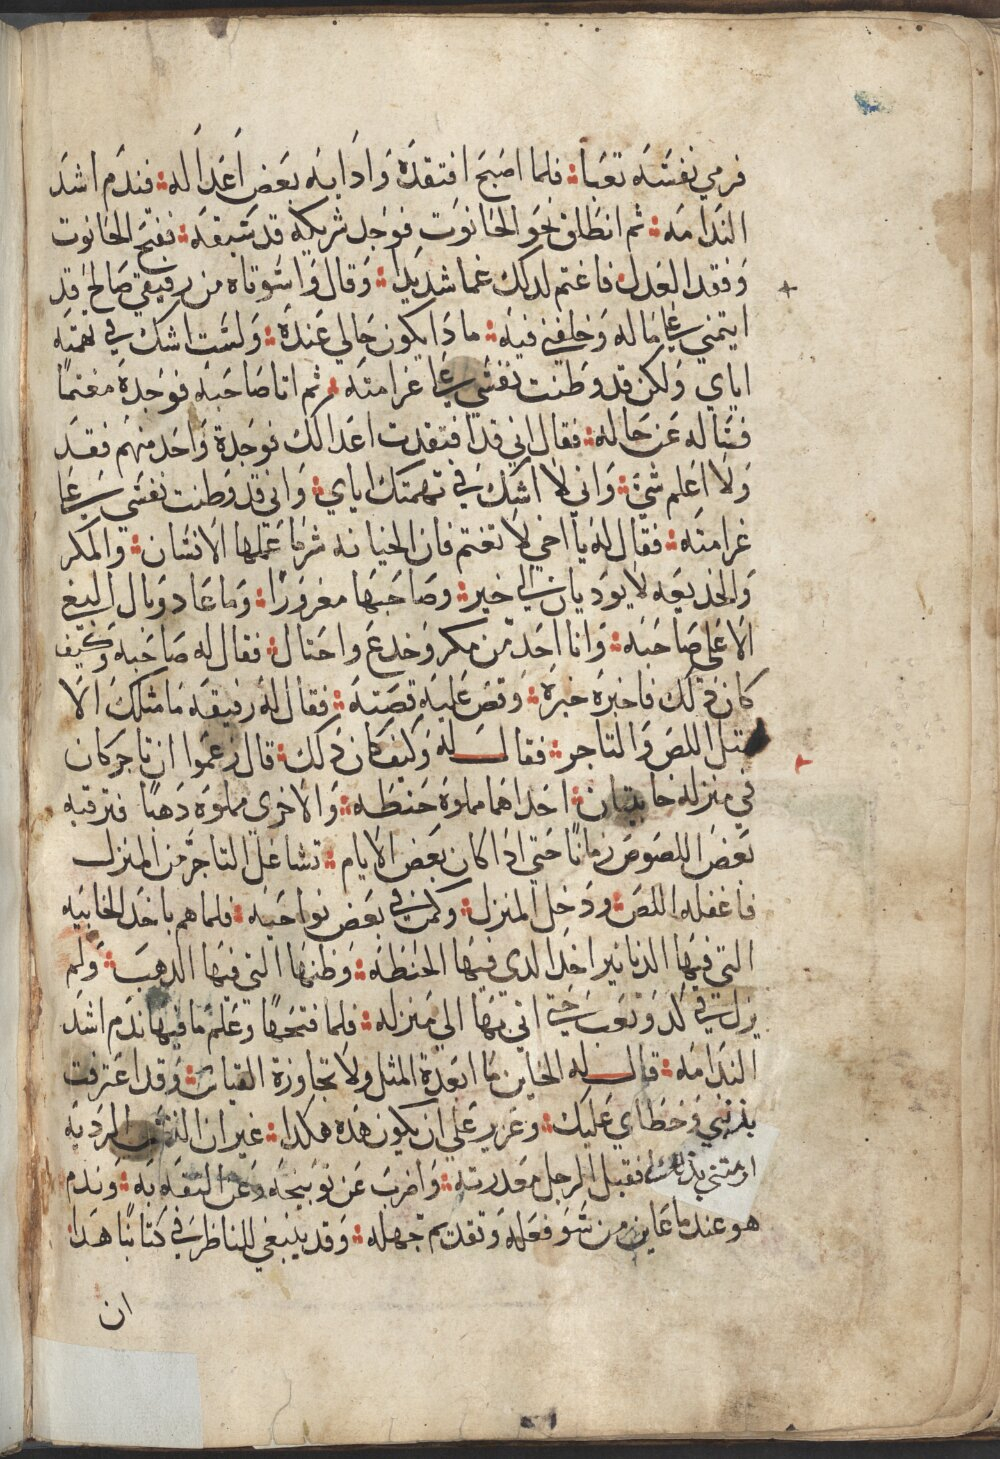 فرمي نفسه تعبا فلما اصبح افتقدة واذا به بعض اعداله فندم اشد
الندامه ثم انطلق نحو الحانوت فوجد شريكه قد سبقه ففتح الحانوت
وفقد العدل فاغتم لدلك غما شديدا وقال واسوتاه من رفيقي صالح قد
ايتمني علي ماله وخلفني فيه ما دا يكون حالي عندة ولست اشك في تهمته
اياي ولكن قد وطنت نفسي علي غرامته ثم اتا صاحبه فوجدة مغتما
فساله عن حاله فقال اني قد افتقدت اعدالك فوجدة واحد منهم فقد
ولا اعلم شي واني لا اشك في تهمتك اياي واني قد وطنت نفسي علي
غرامته فقال له يا اخي لا تغتم فان الخيانه شر ما عملها الانسان والمكر
والخديعه لا يوديان الي خير وصاحبها مغرورا وما عاد وبال البغي
الا علي صاحبه وانا احد من مكر وخدع واحتال فقال له صاحبه وكيف
كان دلك فاخبرة خبرة وقص عليه قصته فقال له رفيقه ما مثلك الا
مثل اللص والتاجر فقال له وكيف كان دلك قال زعموا ان تاجر كان
في منزله خابيتان احداهما مملوة حنطه والاخرى مملوة دهبا فترقبه
بعض اللصوص زمانا حتي ادا كان بعض الايام تشاغل التاجر من المنزل
فاغفله اللص ودخل المنزل وكمن في بعض نواحيه فلما هم باخد الخابيه
التي فيها الدنانير اخد الدي فيها الحنطه وظنها التي فيها الدهب ولم
يزل في كد وتعب حتي اتي بها الى منزله فلما فتحها وعلم ما فيها ندم اشد
الندامه قال له الخاين ما ابعدة المثل ولا تجاوزة القياس وقد اعترفت
بدنبي وخطاي عليك وعزيز علي ان يكون هده هكدا غير ان النفس الرديه
امرتني بدلك فقبل الرجل معدرته واضرب عن توبيخه وعن الثقه به وندم
هو عند ما عاين من سو فعله وتقدم جهله وقد ينبغي للناظر في كتابنا هدا
ان